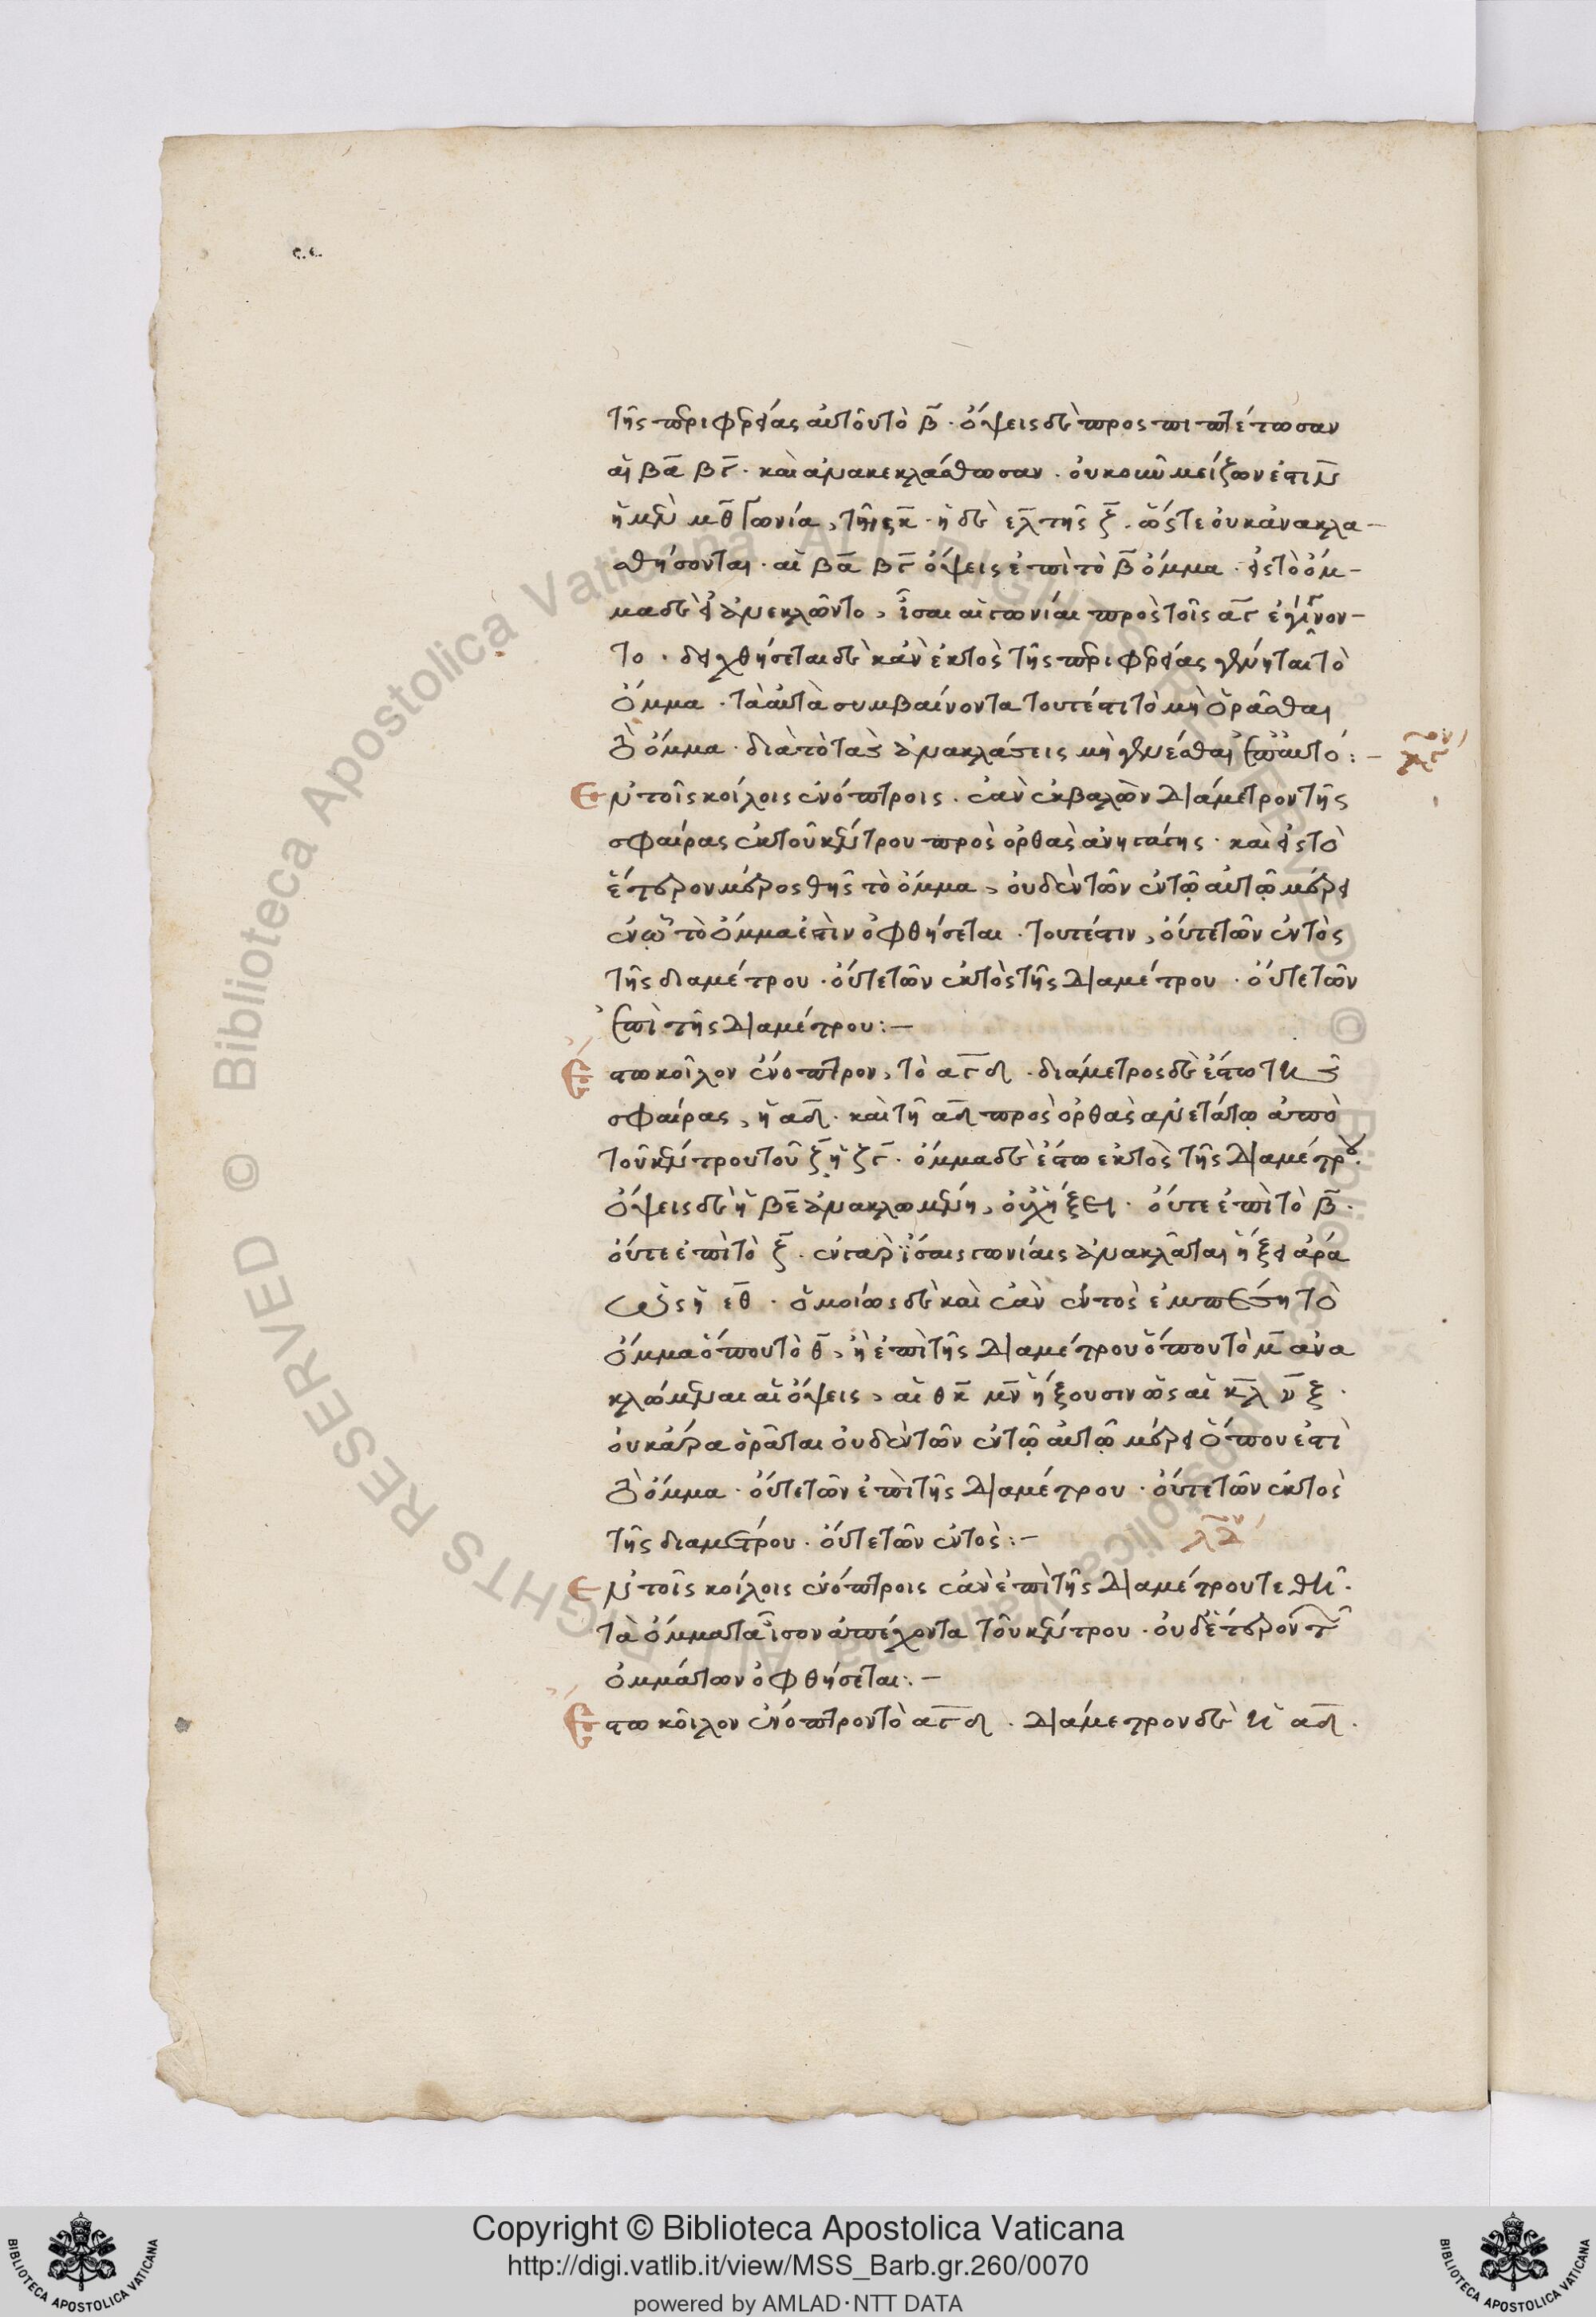 τῆς περιφερείας αὐτοῦ τὸ β̅. ὄψεις δὲ προσπιπτέτωσαν
αἱ β̅α̅ β̅γ̅. καὶ ἀνακεκλάσθωσαν. οὐκοῦν μείζων ἐστὶν
ἡ μὲν μ̅θ̅ γωνία, τῆς κ̅. ἡ δὲ ε̅λ̅ τῆς ξ̅. ὥστε οὐκ ἀνακλα-
σθήσονται. αἱ β̅α̅ β̅γ̅ ὄψεις ἐπὶ τὸ β̅ ὄμμα. εἰς τὸ ὄμ-
μα δὲ εἰ ἀνεκλῶντο, ἴσαι αἱ γωνίαι πρὸς τοῖς α̅γ̅ ἐγίνον-
το. δειχθήσεται δὲ κἂν ἐκτὸς τῆς περιφερείας γένηται τὸ
ὄμμα. τὰ αὐτὰ συμβαίνοντα τουτέστι τὸ μὴ ὁρᾶσθαι
τὸ ὄμμα. διὰ τὸ τὰς ἀνακλάσεις μὴ γενέσθαι ἐπ' αὐτό:-
Ἐν τοῖς κοίλοις ἐνόπτροις. ἐὰν ἐκβαλὼν διάμετρον τῆς
σφαίρας ἐκ τοῦ κέντρου πρὸς ὀρθὰς ἀνηστάσης. καὶ εἰς τὸ
ἕτερον μέρος θῇς τὸ ὄμμα, οὐδὲν τῶν ἐν τῷ αὐτῷ μέρει
ἐν ᾧ τὸ ὄμμα ἐστὶν ὀφθήσεται. τουτέστιν, οὔτε τῶν ἐντὸς
τῆς διαμέτρου. οὔτε τῶν ἐκτὸς τῆς διαμέτρου. οὔτε τῶν
ἐπὶ τῆς διαμέτρου:-
Ἔστω κοῖλον ἔνοπτρον, τὸ α̅γ̅δ̅. διάμετρος δὲ ἔστω τῆς
σφαίρας, ἡ α̅δ̅. καὶ τῇ α̅δ̅ πρὸς ὀρθὰς ἀνεστάτω ἀπὸ
τοῦ κέντρου τοῦ ξ̅ ἡ ζ̅γ̅. ὄμμα δὲ ἔστω ἐκτὸς τῆς διαμέτρου.
ὄψεις δὲ ἡ β̅ε̅ ἀνακλωμένη, οὐχ ἥξει. οὔτε ἐπὶ τὸ β̅.
οὔτε ἐπὶ τὸ ξ̅. ἐν γὰρ ἴσαις γωνίαις ἀνακλᾶται ἥξει ἄρα
ὡς ἡ ε̅θ̅. ὁμοίως δὲ καὶ ἐὰν ἐντὸς ἐμπέσῃ τὸ
ὄμμα ὅπου τὸ θ̅, ἢ ἐπὶ τῆς διαμέτρου ὅπου τὸ μ̅ ἀνα
κλώμεναι αἱ ὄψεις, αἱ θ̅κ̅ μ̅ν̅ ἥξουσιν ὡς αἱ κ̅λ̅ ν̅ξ̅.
οὐκ ἄρα ὁρᾶται οὐδὲν τῶν ἐν τῷ αὐτῷ μέρει ὅπου ἐστὶ
τὸ ὄμμα. οὔτε τῶν ἐπὶ τῆς διαμέτρου. οὔτε τῶν ἐκτὸς
τῆς διαμέτρου. οὔτε τῶν ἐντὸς:-
Ἐν τοῖς κοίλοις ἐνόπτροις ἐὰν ἐπὶ τῆς διαμέτρου τεθῇ.
τὰ ὄμματα ἴσον ἀπέχοντα τοῦ κέντρου. οὐδέτερον τῶν
ὀμμάτων ὀφθήσεται:-
Ἔστω κοῖλον ἔνοπτρον τὸ α̅γ̅δ̅. διάμετρον δὲ ἡ α̅δ̅.
Copyright © Biblioteca Apostolica Vaticana
http://digi.vatlib.it/view/MSS_Barb.gr.260/0070
powered by AMLAD·NTT DATA